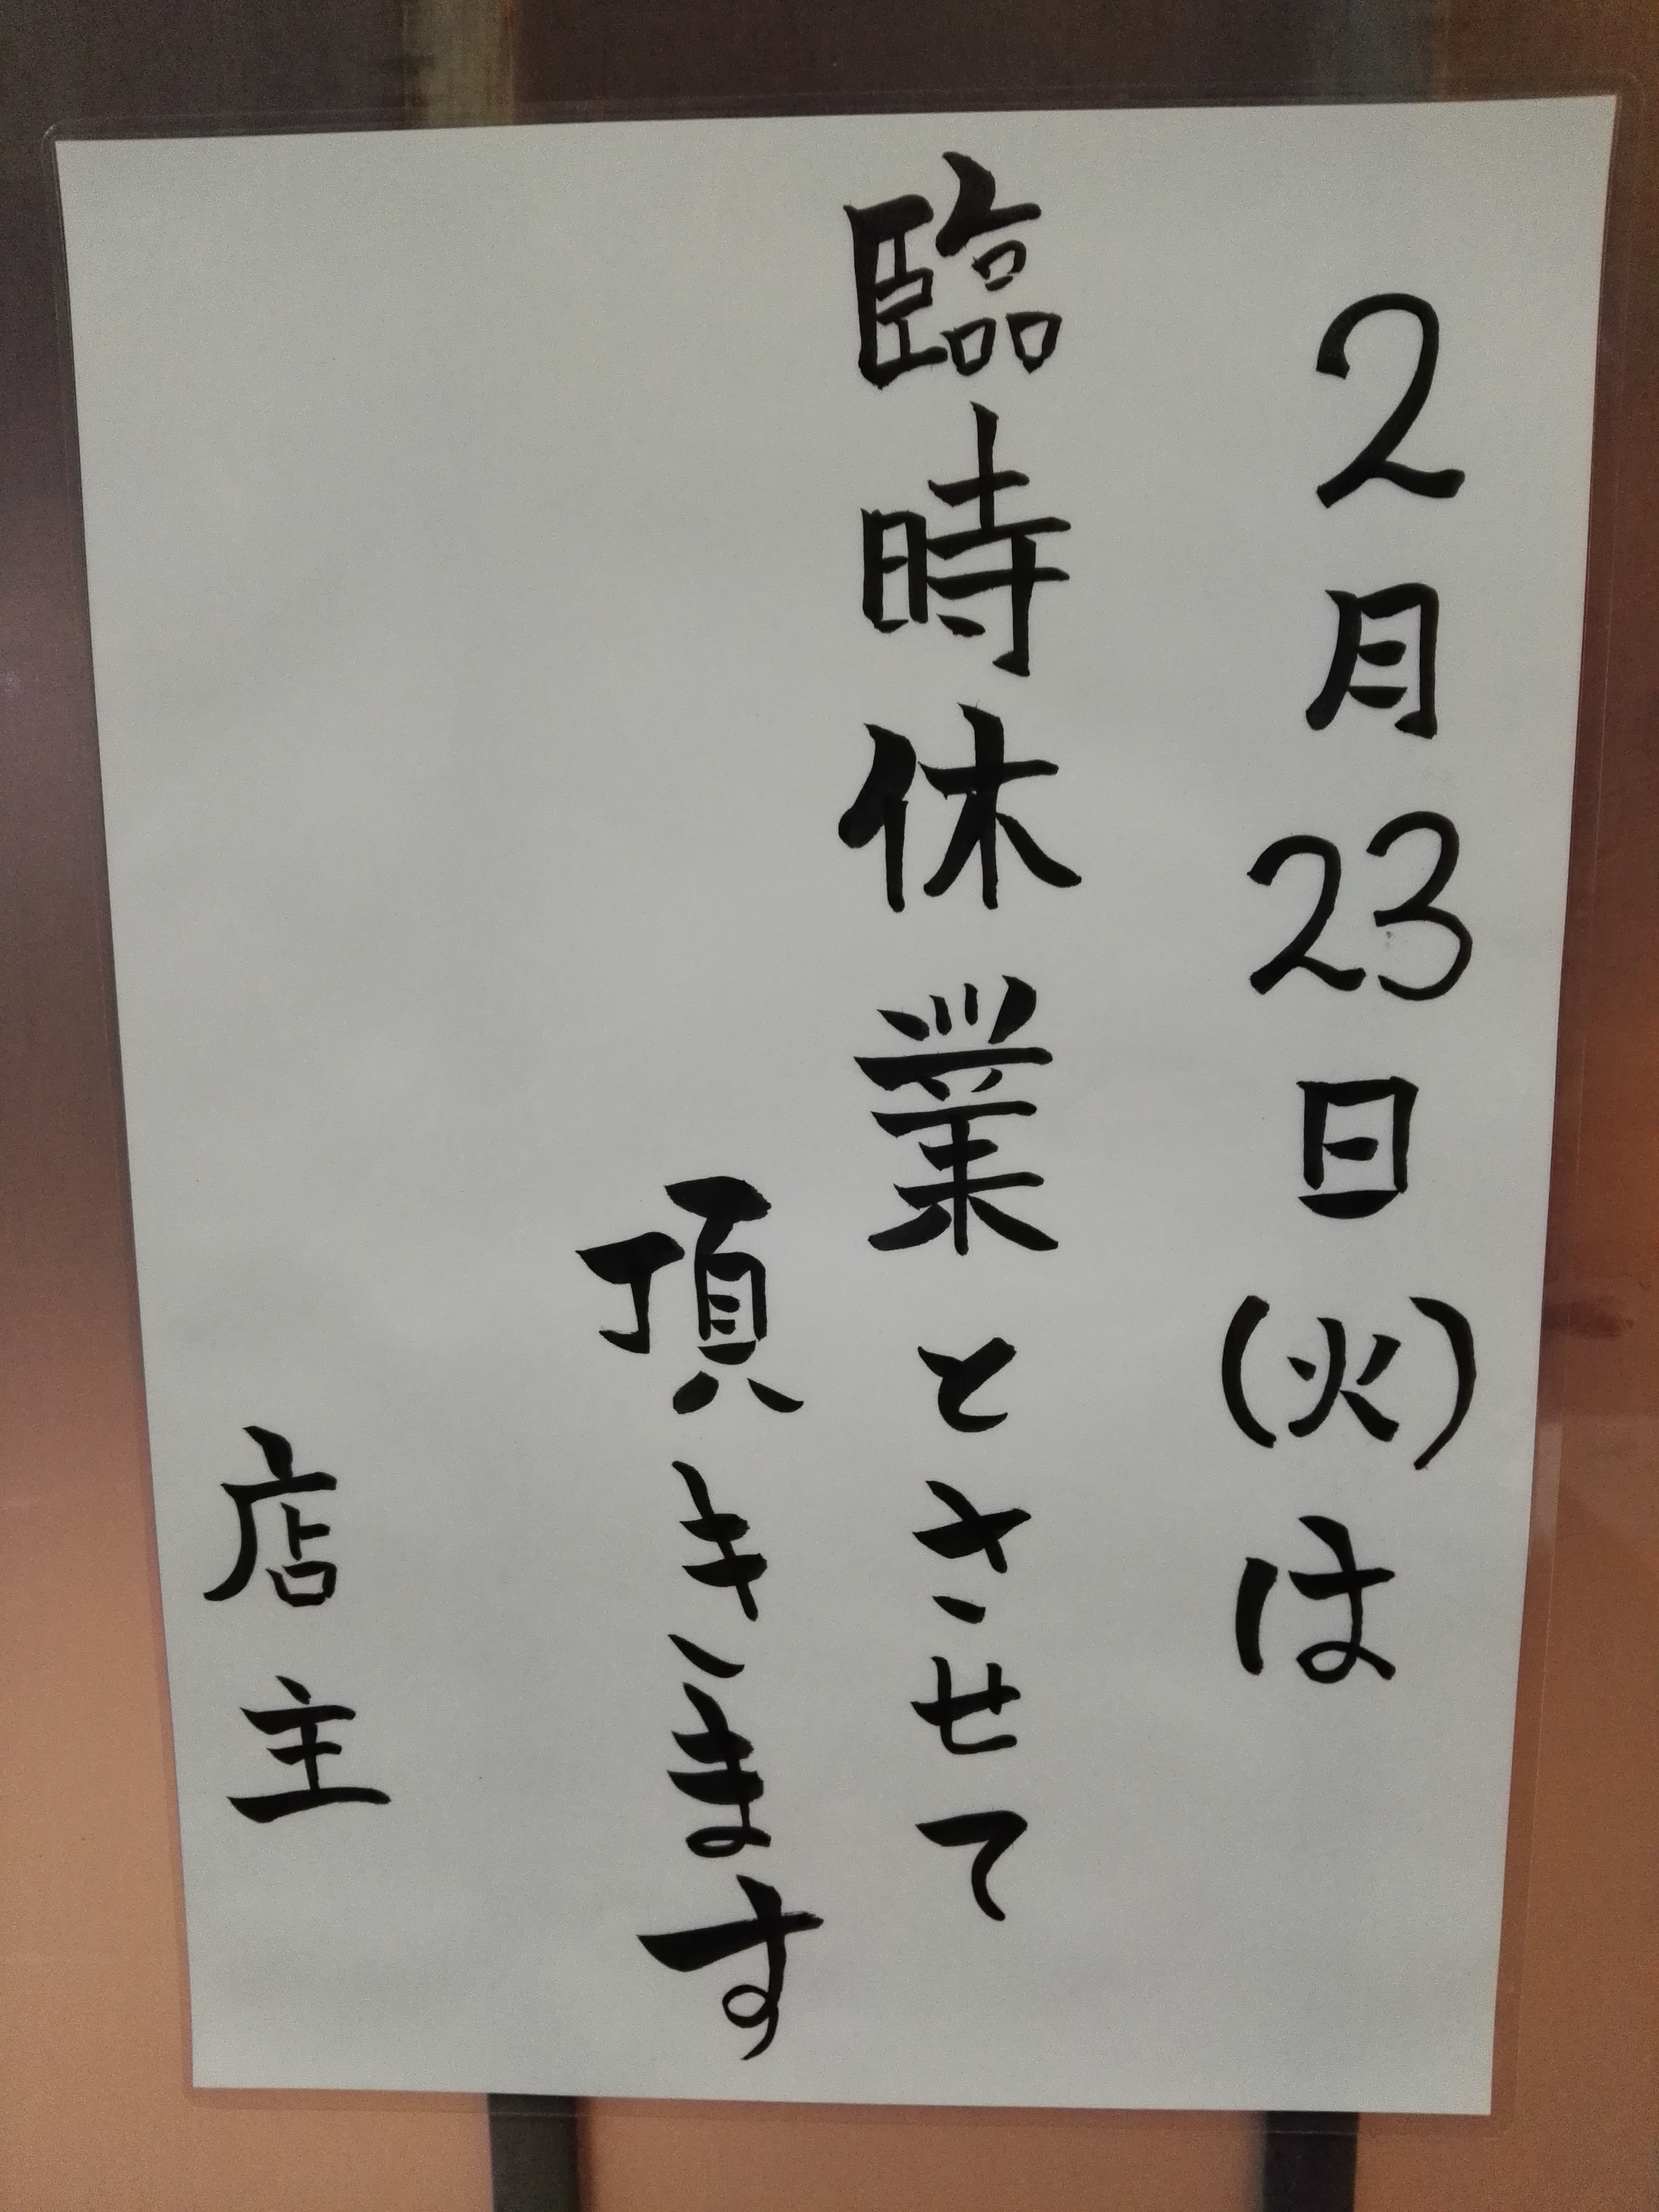 2月23日(火)は
臨時休業とさせて
頂きます
店主